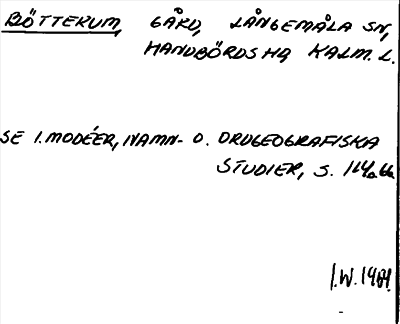 BÖTTERUM, GÅRD, LÅNGEMÅLA SN,
HANDBÖRDS HD KALM. L.
SE I. MODÉER, NAMN- O. ORDGEOGRAFISKA
STUDIER, S. 114
I.W. 1984.